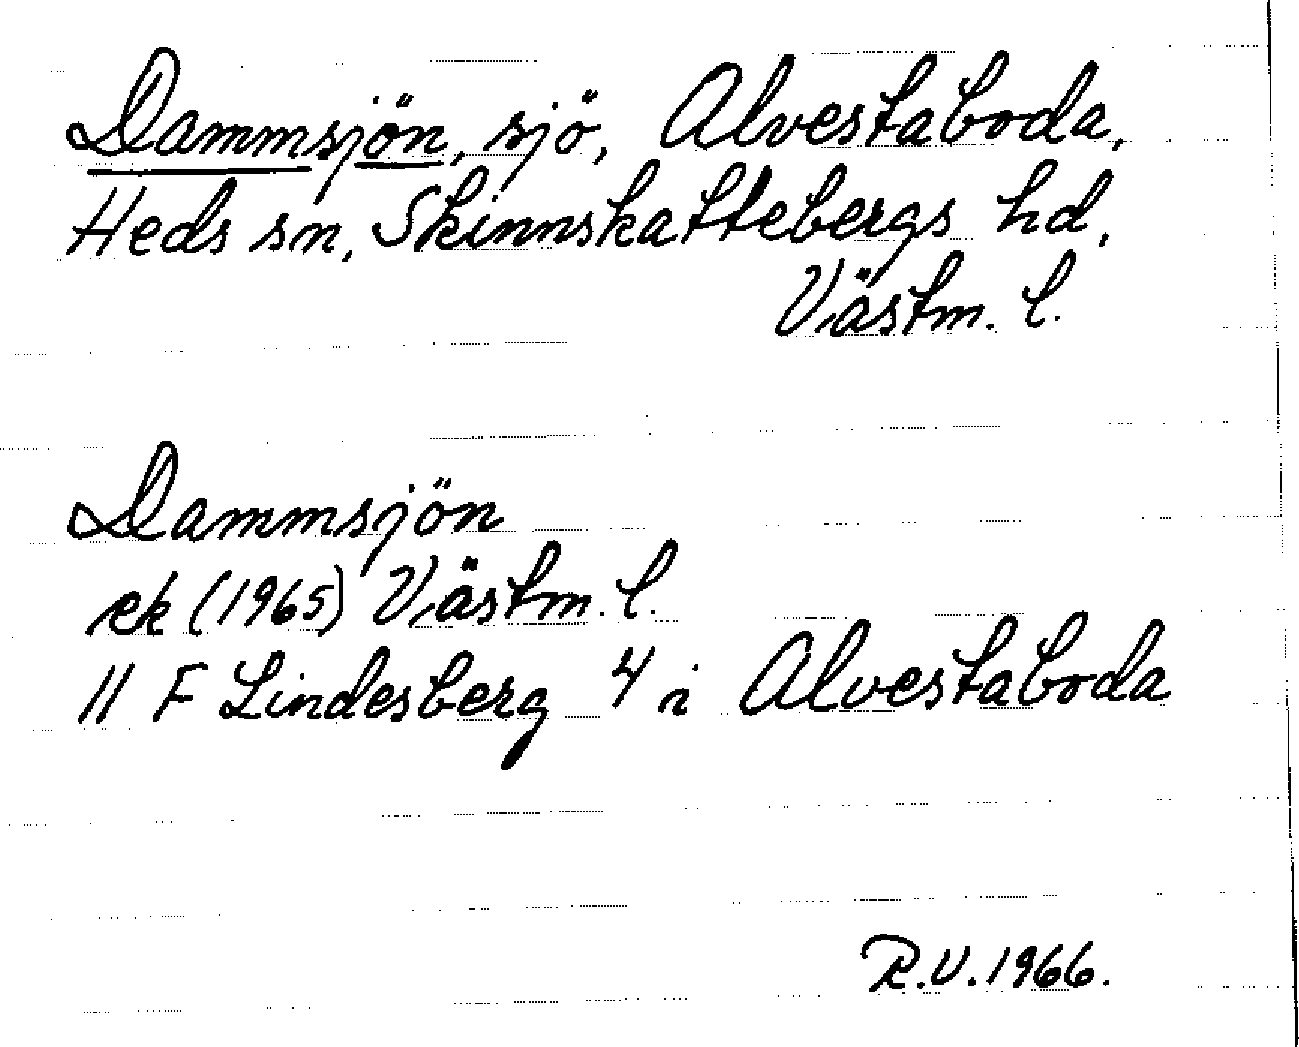 Dammsjön, sjö, Alvestaboda,
Heds sn, Skinnskattebergs hd,
Västm. l.
Dammsjön
ek (1965) Västm. l.
11 F Lindesberg 4 i Alvestaboda
R.V. 1966.